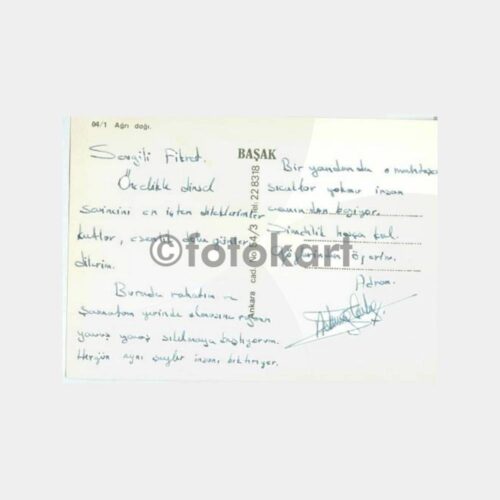 84/1 Ağrı dağı.
Sevgili Fikret.
Öncelikle dinsel
en içten dileklerimle
kutlar, esenlik dolu günler
dilerim.
Burada rahatım ve
yerinde olmasına rağmen
yavaş yavaş sıkılmaya başlıyorum.
Hergün aynı şeyler insanı bıktırıyor.
BAŞAK
Ankara cad. No. 64/3 Tel: 22 83 18
Bir yandan da o
sıcaklar yokmu insan
canından beziyor.
Şimdilik hoşça kal.
Gözlerinden öperim.
Adnan.
©fotokart